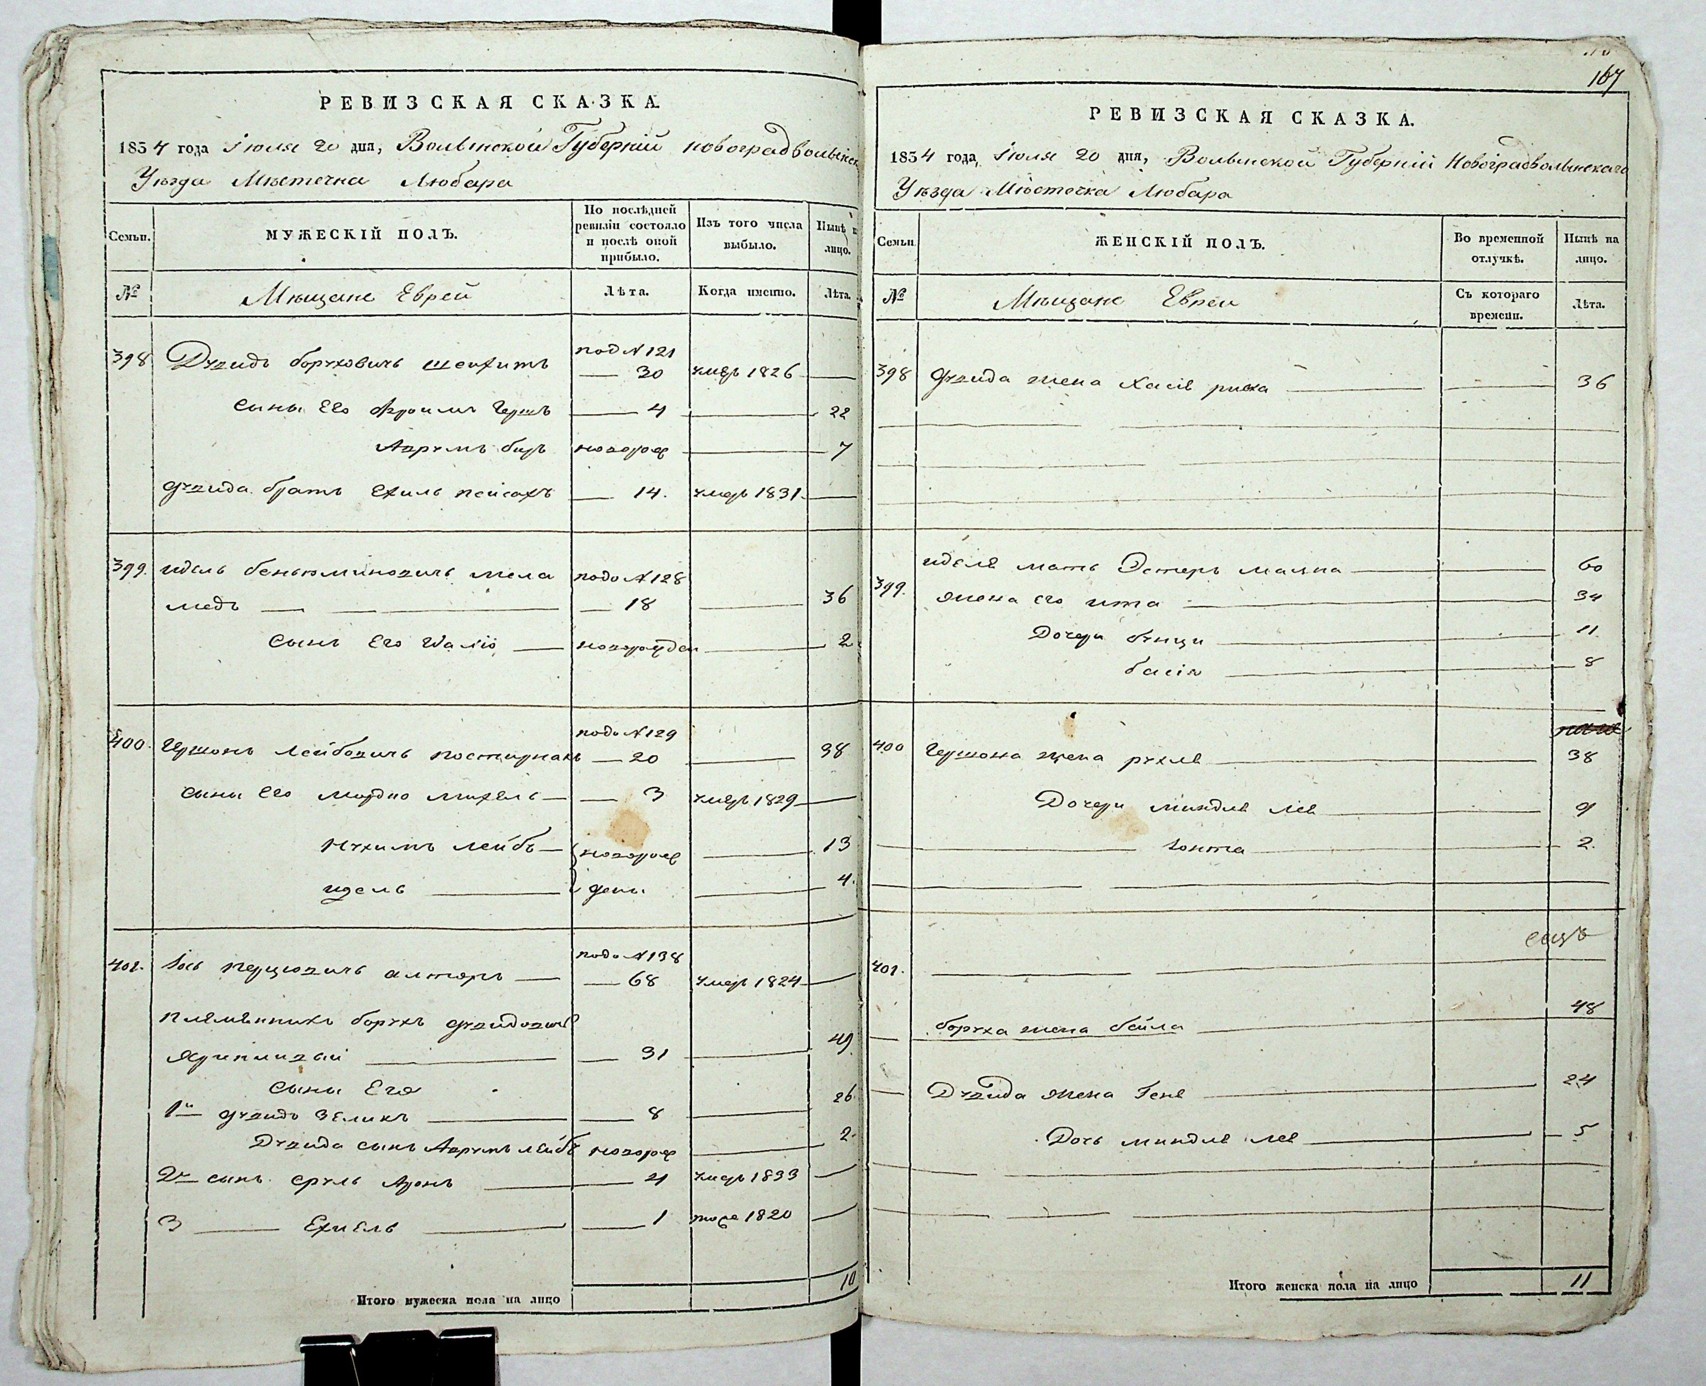 РЕВИЗСКАЯ СКАЗКА.
1834 года Іюля 20 дня, Волынской Губерніи Новоградволынск
Уѣзда Мѣстечка Любара
Семьи.
МУЖЕСКІЙ ПОЛЪ.
По послѣдней ревизіи состояло и послѣ оной прибыло.
Изъ того числа выбыло.
Нынѣ н лицо.
№
Мѣщане Евреи
Лѣта.
Когда именно.
Лѣта.
подъ №121
398 Дувидъ Боруховичь 30 умеръ 1826
сыны Его Фроимъ Гершъ 4 22
Аврумъ Беръ новорож 7
Дувида братъ Ехиль Пейсахъ 14. умеръ 1831
399. Идель Беньюминовичь Мела подъ №128
медъ 18 36
сынъ Его новорожден 2
подъ №129
400. Гершонъ Лейбовичь 20 38
сыны Его Мордко Михель 3 умеръ 1829
Нухимъ Лейбъ новорож 13
Идель дены 4.
подъ №138
401. Іось Алтеръ 68 умеръ 1824
племянникъ Борухъ Дувидовичь
31 49
сыны Его
1й Дувидъ Зеликъ 8 26
Дувида сынъ Аврумъ Лейбъ новорож 2
2й сынъ Сруль Аронъ 4 умеръ 1833
3 Ехиель 1 тоже 1820
Итого мужеска пола на лицо 10
167
РЕВИЗСКАЯ СКАЗКА.
1834 года, Іюля 20 дня, Волынской Губерніи Новоградволынскаго
Уѣзда Мѣстечка Любара
Семьи
ЖЕНСКІЙ ПОЛЪ.
Во временной отлучкѣ.
Нынѣ на лицо.
№
Мѣщане Евреи
Съ котораго времени.
Лѣта.
398 Дувида жена Хася Ривка 36
Иделя мать Эстеръ Малка 60
399. жена его Ита 34
Дочери 11
Бася 8
400 Гершона жена Рухля 38
Дочери Миндля Лея 9
2
401.
Боруха жена Бейла 48
Дувида жена Геня 24
Дочь Миндля Лея 5
Итого женска пола на лицо 11